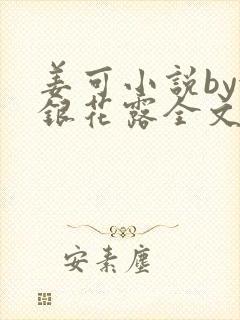 姜可小説by
銀花露全文
安素塵